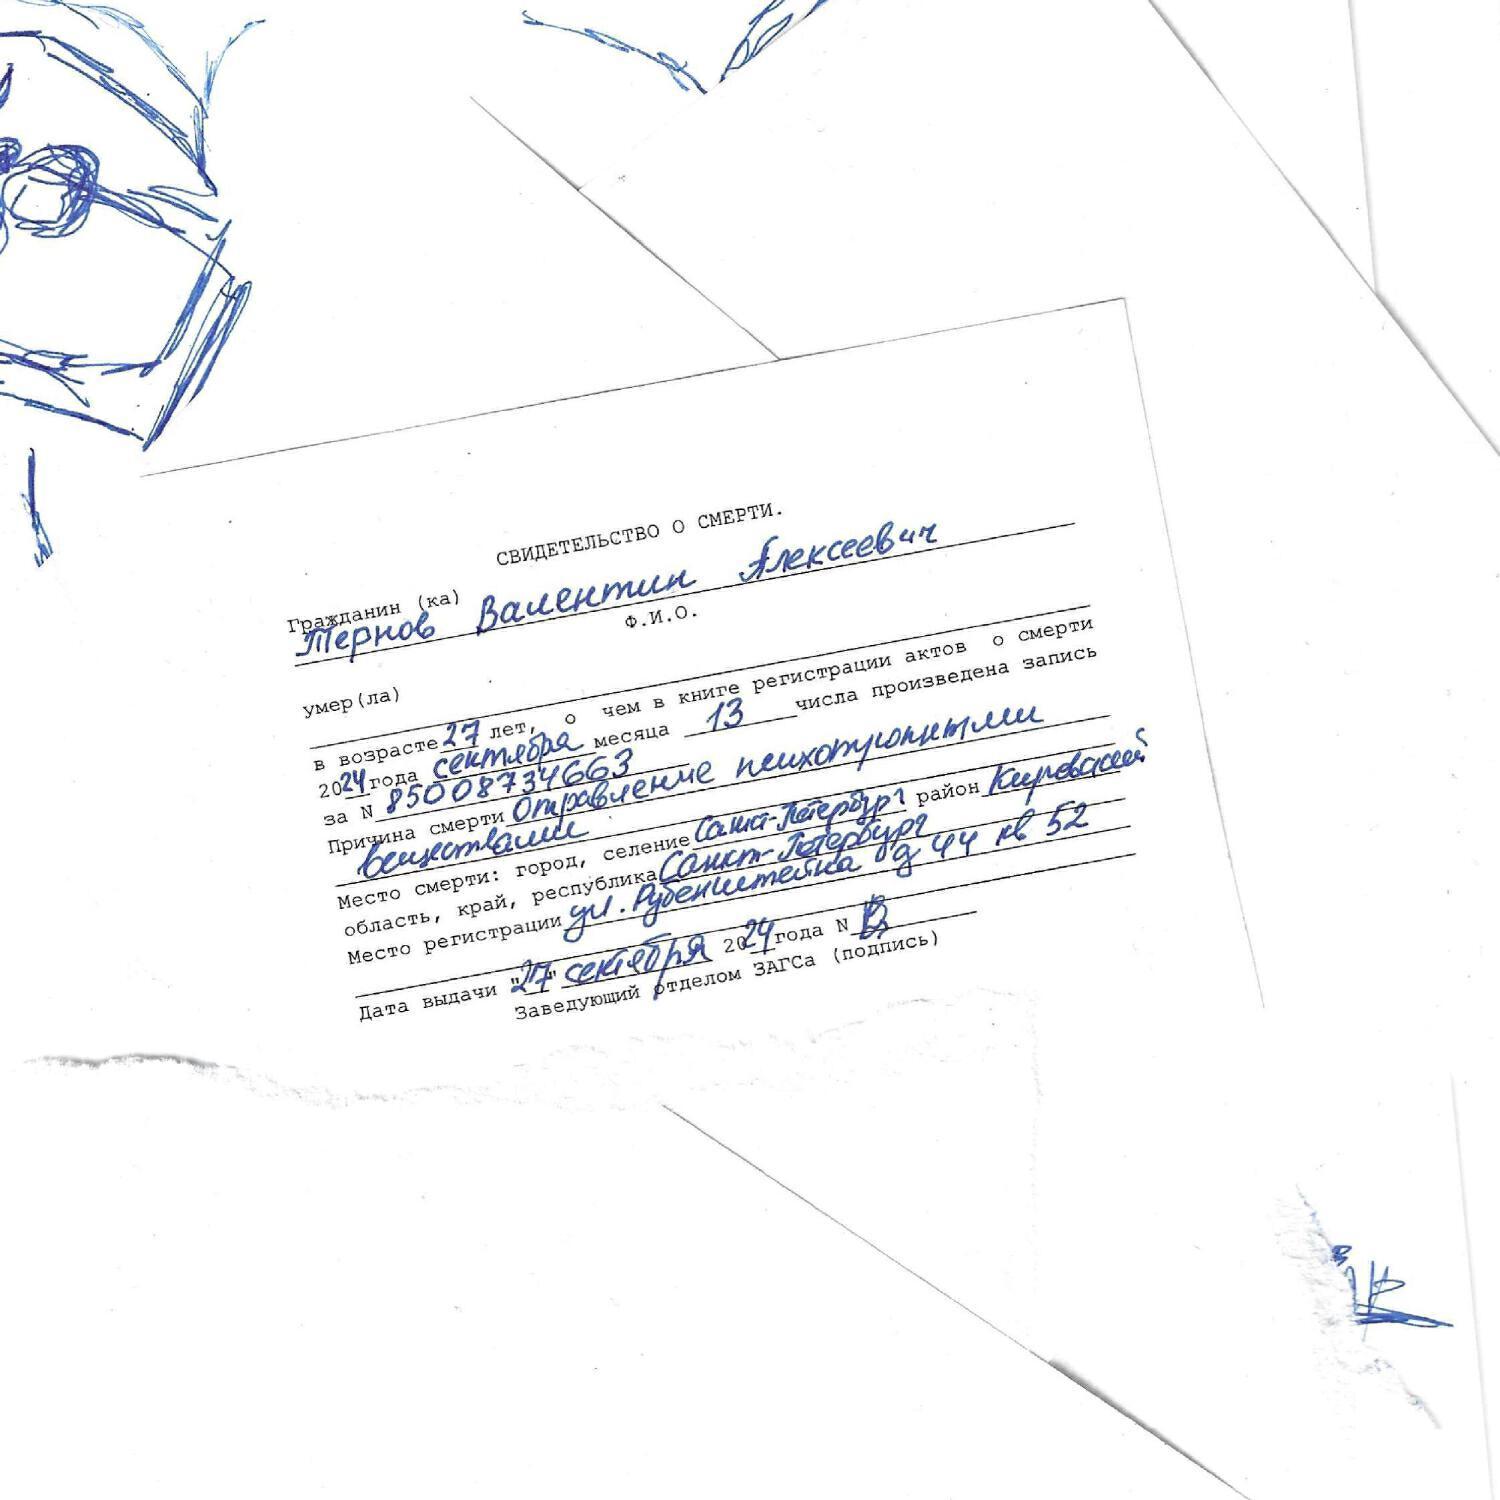 СВИДЕТЕЛЬСТВО О СМЕРТИ.
Гражданин (ка)
Тернов Валентин Алексеевич
Ф.И.О.
умер(ла)
в возрасте 27 лет, о чем в книге регистрации актов о смерти
2024 года сентября месяца 13 числа произведена запись
за N 85008734663
Причина смерти Отравление психотропными
веществами
Место смерти: город, селение Санкт-Петербург район Кировский
область, край, республика Санкт-Петербург
Место регистрации ул. Рубенштейна д 44 кв 52
Дата выдачи "27" сентября 2024 года N
Заведующий отделом ЗАГСа (подпись)